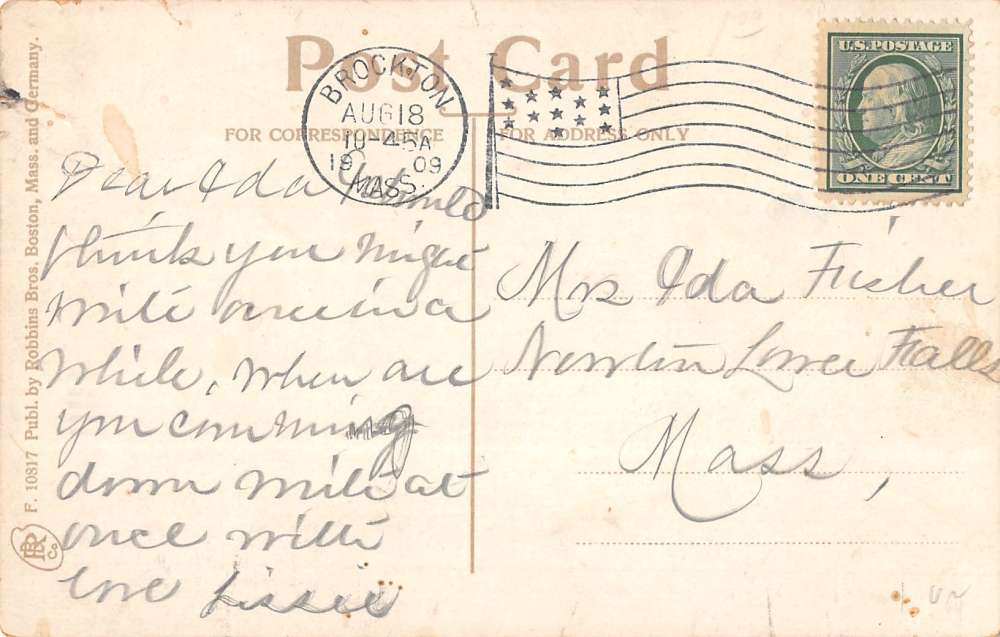 Post Card
FOR CORRESPONDENCE
FOR ADDRESS ONLY
BROCKTON,
AUG 18
10-45A
1909
MASS.
U.S. POSTAGE
ONE CENT
Dear Ida I should
think you might
write once in a
while, when are
you comming
down write at
once with
love Lizzie
Mrs Ida Fisher
Newton Lower Falls
Mass,
F. 10817 Publ. by Robbins Bros. Boston, Mass. and Germany.
RB
Co